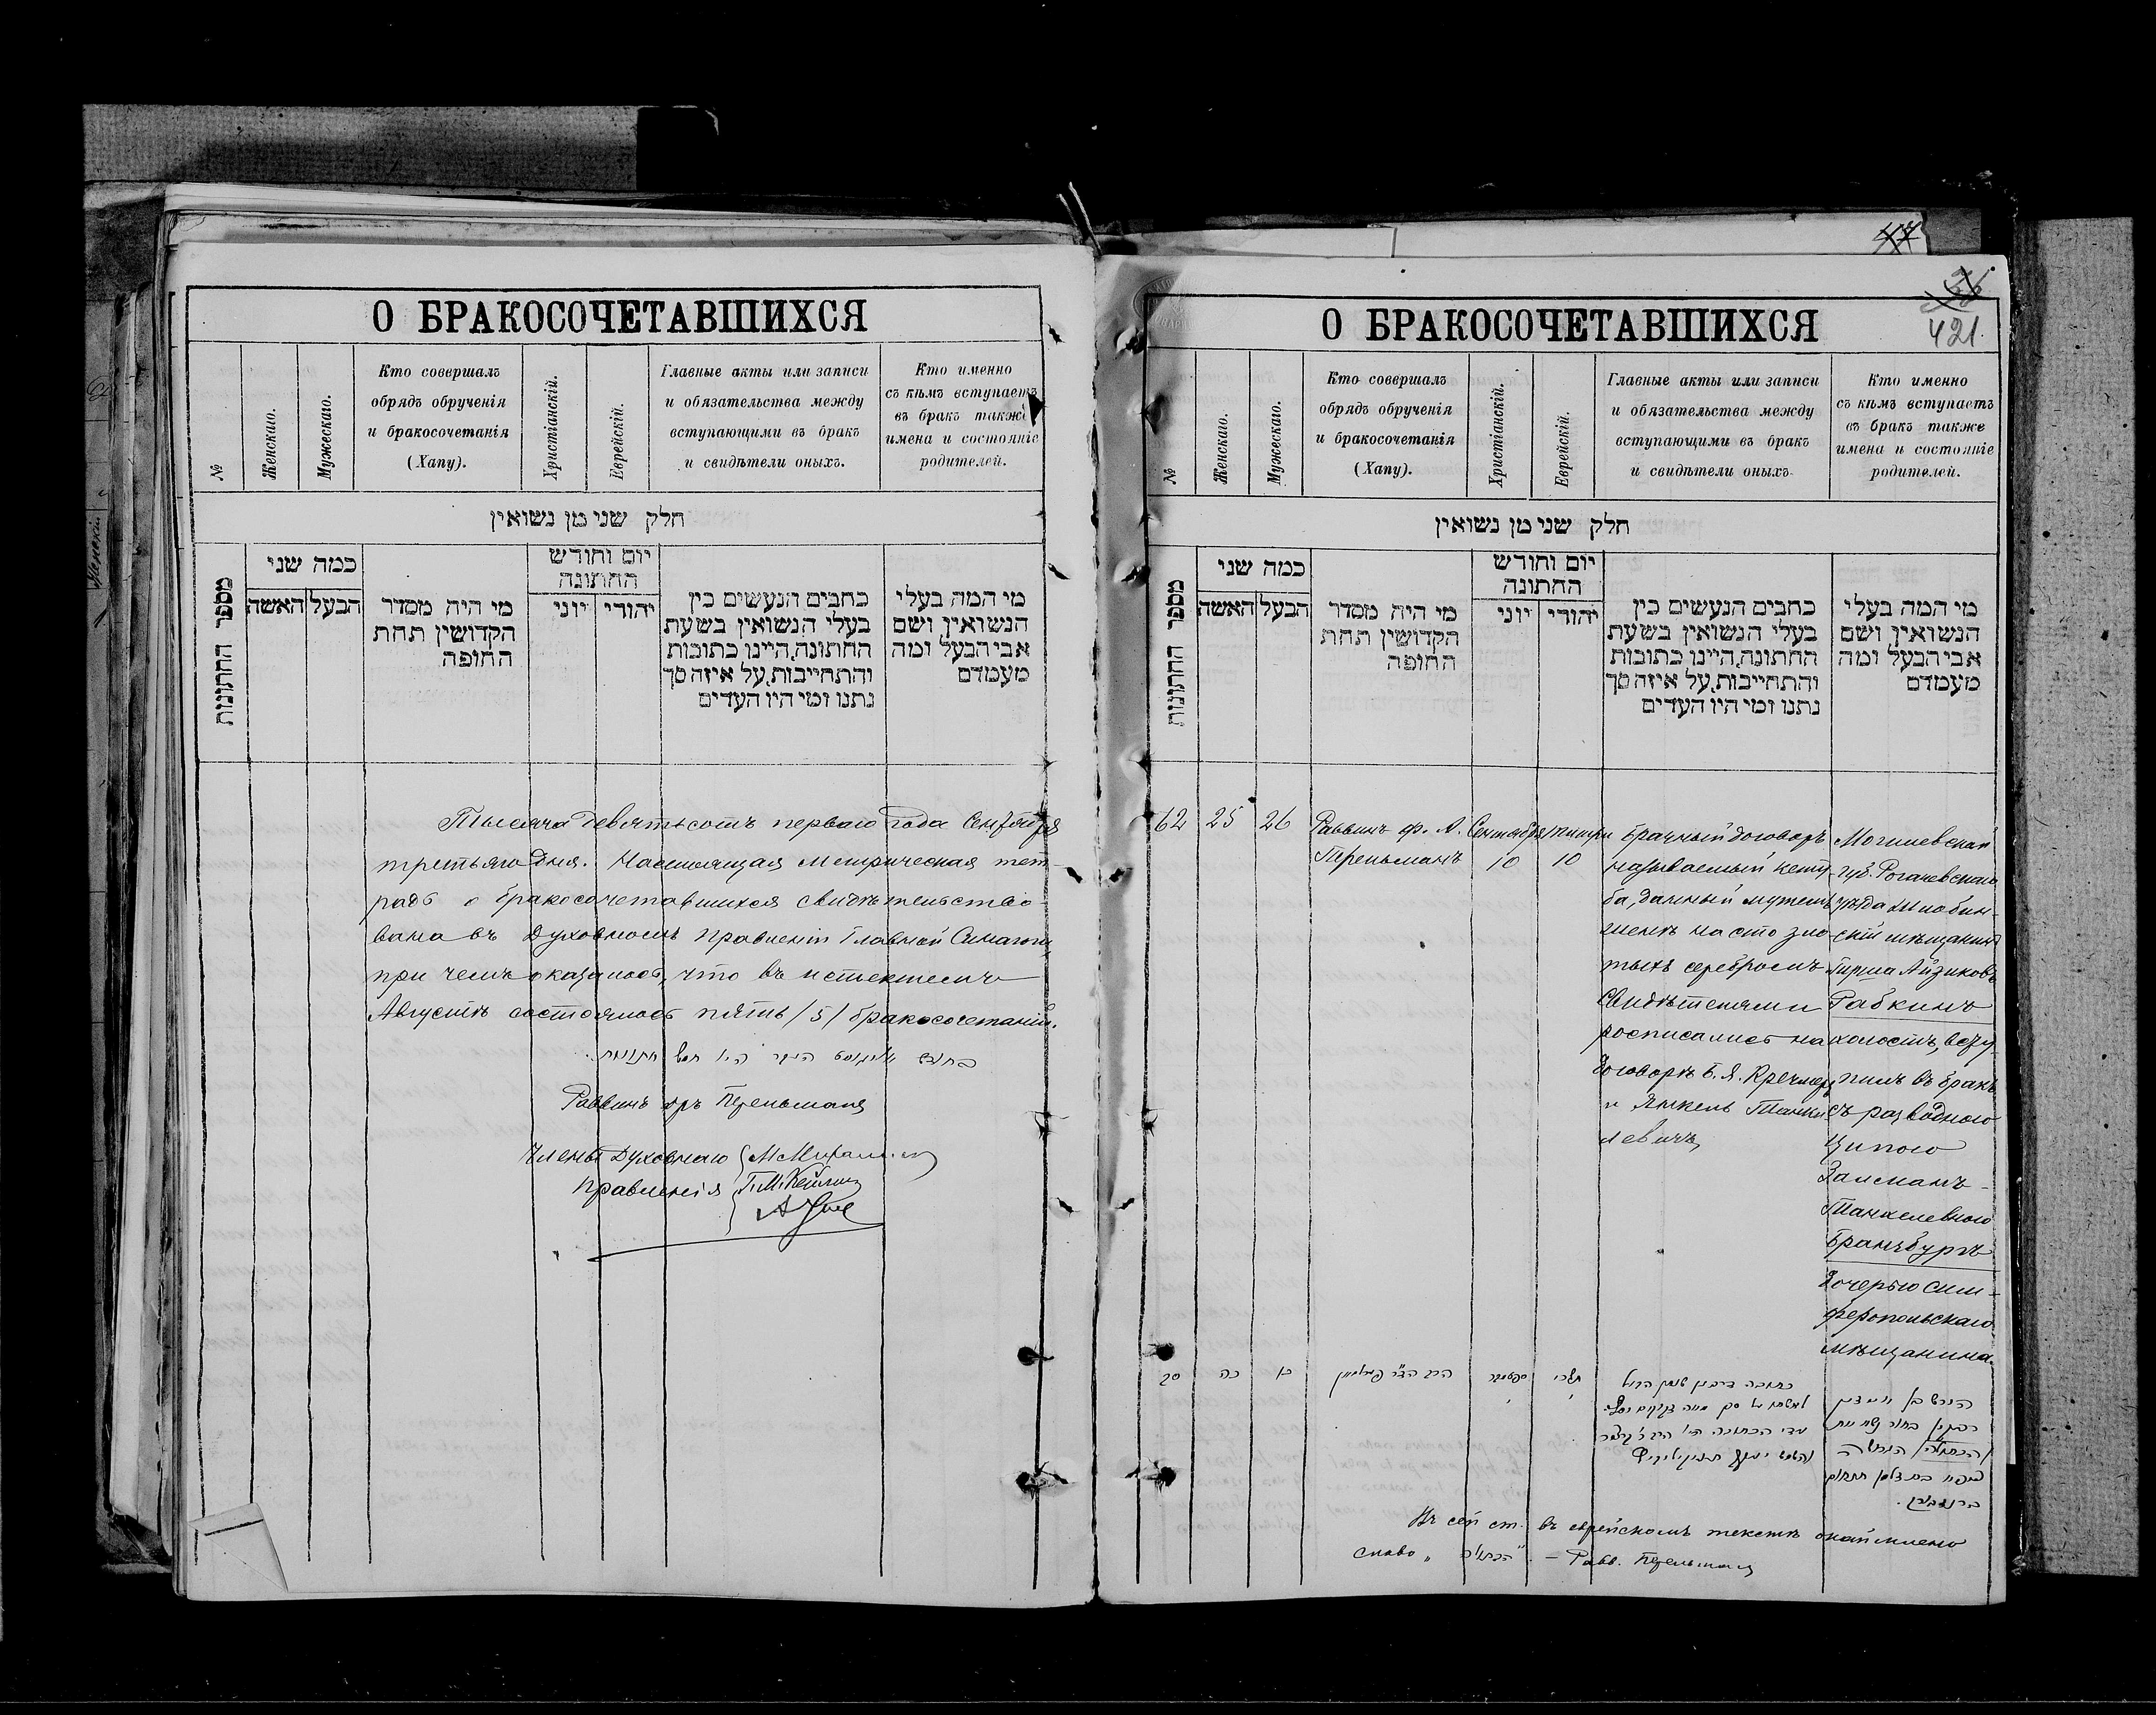 О БРАКОСОЧЕТАВШИХСЯ
№
Женскаго.
Мужескаго.
Кто совершалъ
обрядъ обрученія
и бракосочетанія
(Хапу).
Христіанскій.
Еврейскій.
Главные акты или записи
и обязательства между
вступающими въ бракъ
и свидѣтели оныхъ.
Кто именно
съ кѣмъ вступаетъ
въ бракъ также
имена и состояніе
родителей.
חלק שני מן נשואין
מספר החתונות
כמה שני
האשה
הבעל
מי היה מסדר
הקדושין תחת
החופה
יום וחודש
החתונה
יוני
יהודי
כתבים הנעשים בין
בעלי הנשואין בשעת
החתונה, היינו כתובות
והתחייבות, על איזה סך
נתנו ומי היו העדים
מי המה בעלי
הנשואין ושם
אבי הבעל ומה
מעמדם
Тысяча девятьсотъ перваго года Сентября
третьяго дня. Настоящая Метрическая тет-
радь о бракосочетавшихся свидѣтельство-
вана въ Духовномъ Правленіи Главной Синагоги,
при чемъ оказалось, что въ истекшемъ
Августѣ состоялось пять /5/ бракосочетаній.
Раввинъ др Перельманъ
Члены Духовнаго
Правленія
О БРАКОСОЧЕТАВШИХСЯ
421
№
Женскаго.
Мужескаго.
Кто совершалъ
обрядъ обрученія
и бракосочетанія
(Хапу).
Христіанскій.
Еврейскій.
Главные акты или записи
и обязательства между
вступающими въ бракъ
и свидѣтели оныхъ
Кто именно
съ кѣмъ вступаетъ
въ бракъ также
имена и состояніе
родителей.
חלק שני מן נשואין
מספר החתונות
כמה שני
האשה
הבעל
מי היה מסדר
הקדושין תחת
החופה
יום וחודש
החתונה
יוני
יהודי
כתבים הנעשים בין
בעלי הנשואין בשעת
החתונה, היינו כתובות
והתחייבות, על איזה סך
נתנו ומי היו העדים
מי המה בעלי
הנשואין ושם
אבי הבעל ומה
מעמדם
62
25
26
Раввинъ ф. А.
Перельманъ
Сентября
10
Тишри
10
Брачный договоръ
называемый кету-
ба, данный мужемъ
женѣ на сто зло-
тыхъ серебромъ
Свидѣтелями
росписались на
договорѣ Б. Я. Кречмеръ
и Янкель Танхи-
левичъ
Могилевской
губ. Рогачевскаго
уѣзда Жлобин-
скій мѣщанинъ
Гирша Айзиковъ
Рабкинъ
холостъ, всту-
пилъ въ бракъ
съ разводною
Ципою
Залманъ-
Танхелевною
Бранбургъ
дочерью сим-
феропольскаго
мѣщанина.
סב
כה
כו
ספטמבר
תשרי
Въ сей ст. въ еврейскомъ текстѣ
слово
— Равв. Перельманъ